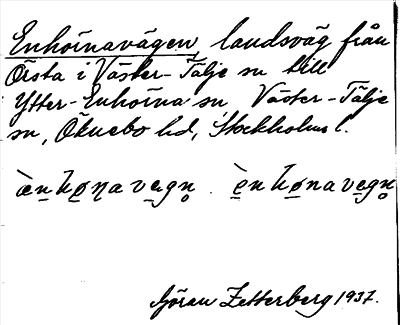 Enhörnavägen, landsväg från
Örsta i Väster-Tälje sn till
Ytter-Enhörna sn Väster-Tälje
sn, Öknebo hd, Stockholms l.
Göran Zetterberg 1937.